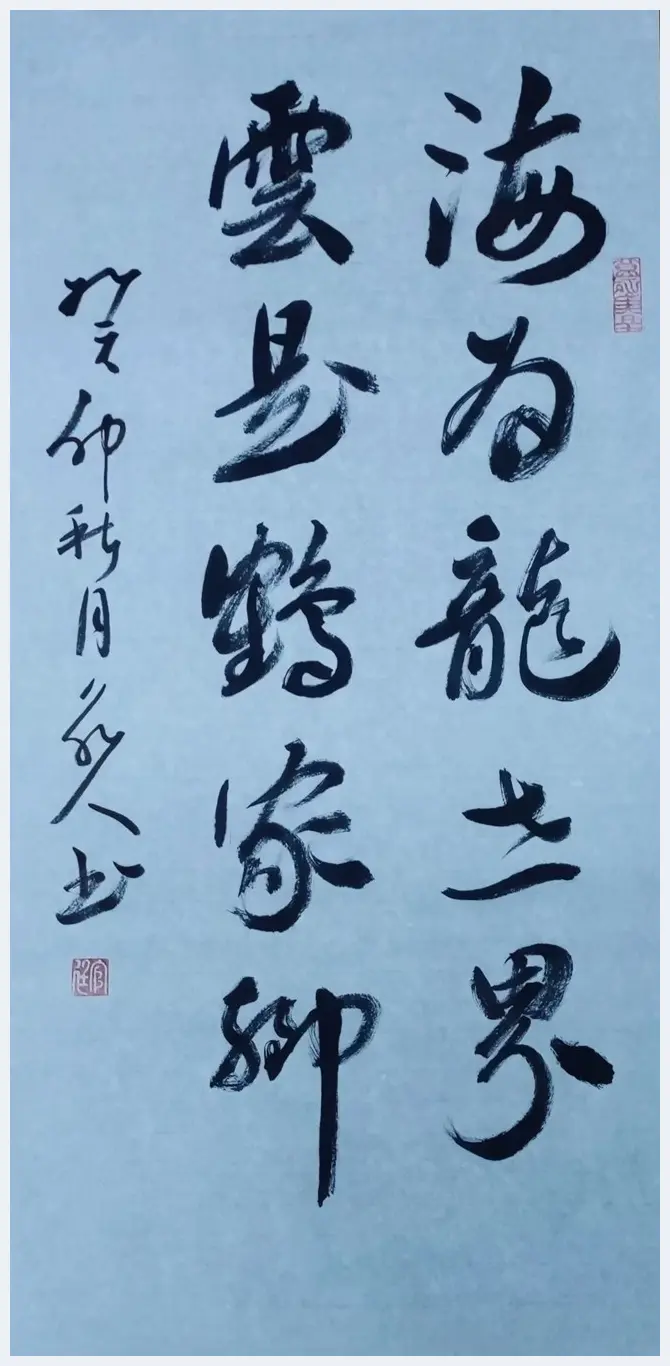 海为龍世界
雲是鶴家鄉
癸卯秋月人书